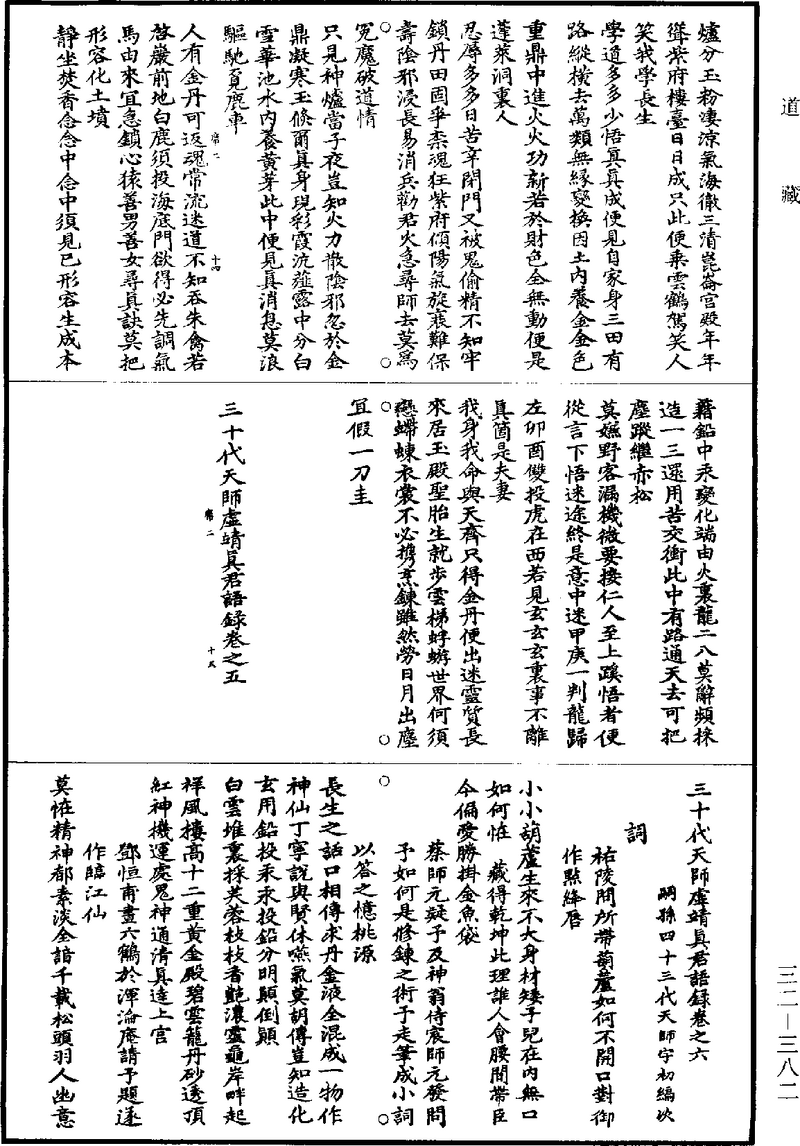 道藏
爐分玉粉淒涼氣海徹三清崑崙宮殿年年
聳紫府樓臺日日成只此便乘雲鶴駕笑人
笑我學長生
學道多多少悟真真成便見自家身三田有
路縱橫去萬類無緣變換因土內養金金色
重鼎中進火火功新若於財色全無動便是
蓬萊洞裏人
忍辱多多日苦辛閉門又被鬼偷精不知牢
鎖丹田固爭柰魂狂紫府傾陽氣旋衰難保
壽陰邪浸長易消兵勸君火急尋師去莫為
冤魔破道情
只見神爐當子夜豈知火力散陰邪忽於金
鼎凝寒玉倏爾真身現彩霞沆瀣露中分白
雪華池水內養黃芽此中便見真消息莫浪
驅馳覓鹿車
席二 十四
人有金丹可返魂常流迷道不知吞朱禽若
啓巖前地白鹿須投海底門欲得必先調氣
馬由來宜急鎖心猿善男善女尋真訣莫把
形容化土墳
靜坐焚香念念中念中須見已形容生成本
藉鉛中汞變化端由火裏龍二八莫辭頻採
造一三還用苦交衝此中有路通天去可把
塵蹤繼赤松
莫嫌野客漏機微要接仁人至上蹊悟者便
從言下悟迷途終是意中迷甲庚一判龍歸
左卯酉雙投虎在西若見玄玄玄裏事不離
真箇是夫妻
我身我命與天齊只得金丹便出迷靈質長
來居玉殿聖胎生就步雲梯蜉蝣世界何須
戀蟒蝀衣裳不必攜烹鍊雖然勞日月出塵
冝假一刀圭
三十代天師虛靖真君語錄卷之五
席二 十五
三十代天師虛靖真君語錄卷之六
嗣孫四十三代天師宇初編次
詞
祐陵問所帶葫蘆如何不開口對御
作點絳唇
小小葫蘆生來不大身材矮子兒在內無口
如何怪 藏得乾坤此理誰人會腰間帶臣
今偏愛勝掛金魚袋
蔡師元疑予及神翁侍宸師元發問
予如何是修鍊之術予走筆成小詞
以答之憶桃源
長生之話口相傳求丹金液全混成一物作
神仙丁寧說與賢休嚥氣莫胡傳豈知造化
玄用鉛投汞汞投鉛分明顛倒顛
白雲堆裏採芙蓉枝枝香艷濃靈龜岸畔起
祥風樓高十二重黃金殿碧雲籠丹砂透頂
紅神機運處鬼神通清真達上宮
鄧恒甫畫六鶴於渾淪庵請予題遂
作臨江仙
莫怪精神都素淡全諳千載松頭羽人幽意
三二—三八二